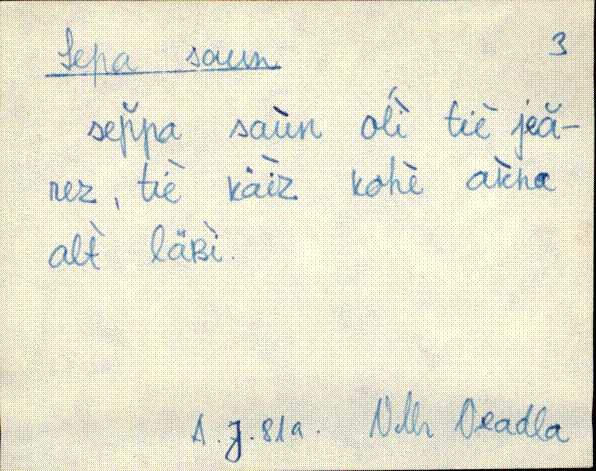 Sepa saun 3
sep̆pa saùn oĺì tiè jeă-
rez, tiè kàiz kohè akna
alt̀ läʙì.
A. J. 81a. Deadla